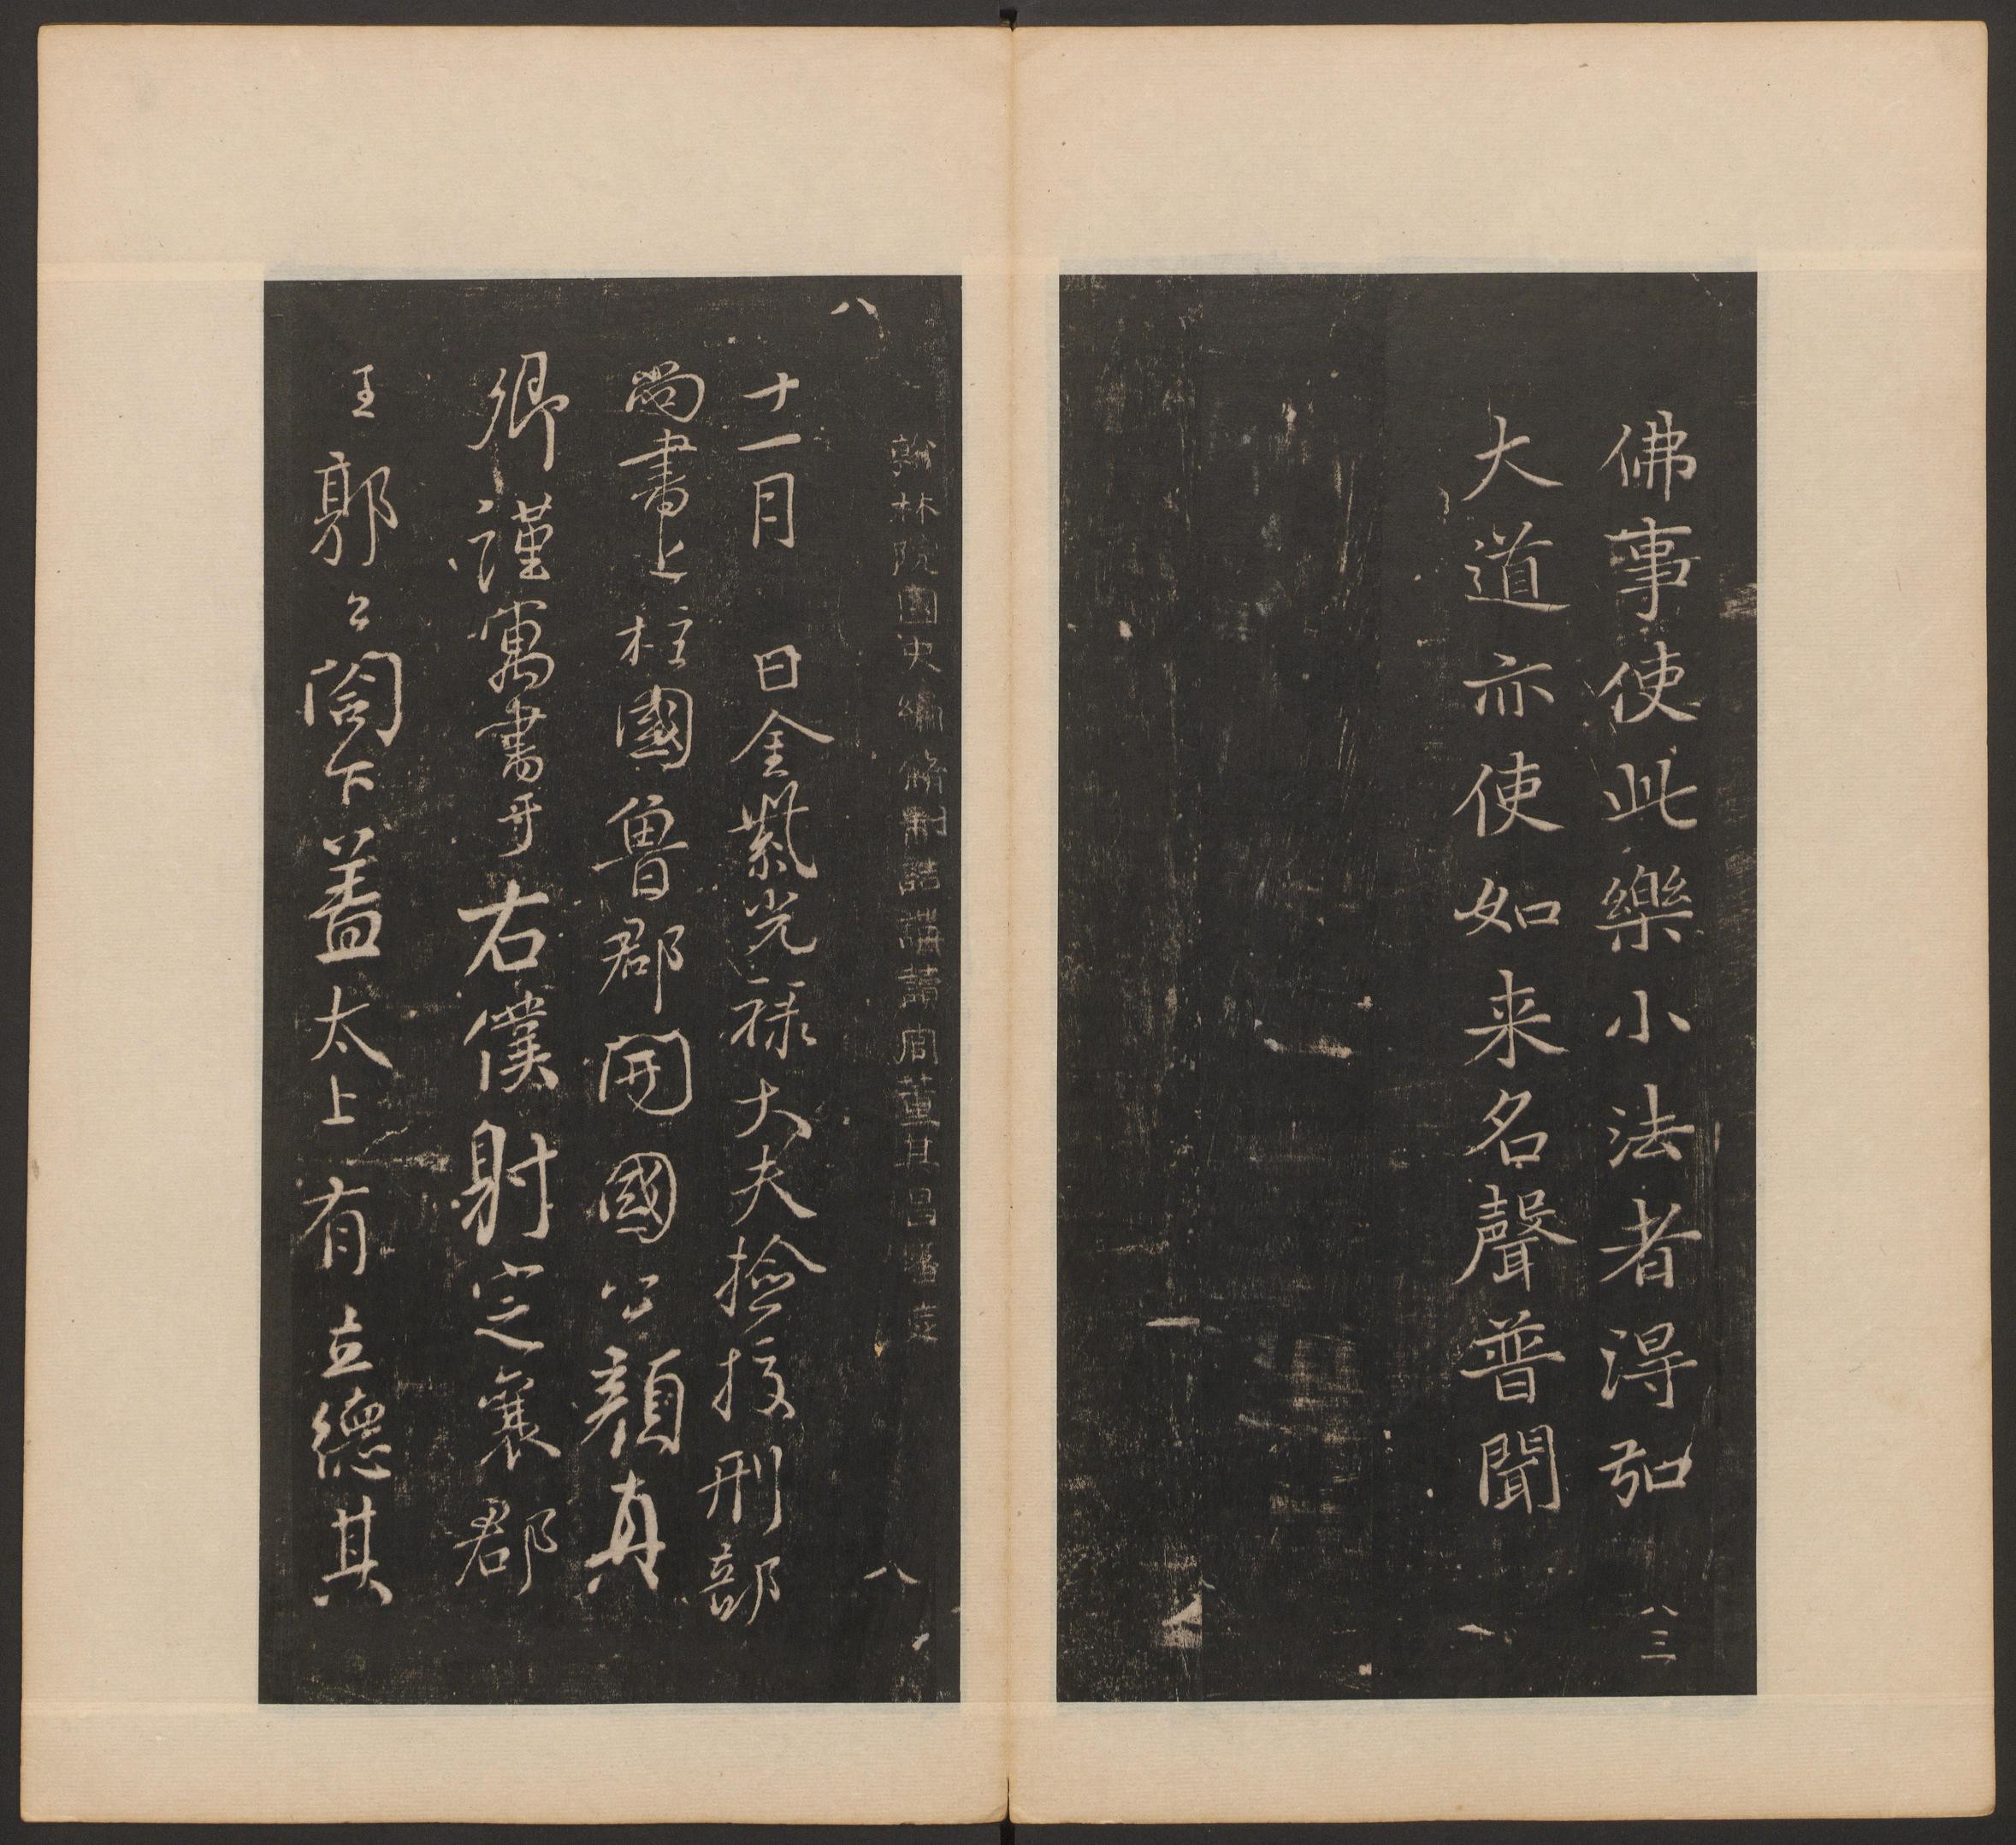 佛事使此樂小法者得弘
八三
大道亦使如来名聲普聞
八
翰林院國史編脩制誥講讀官董其昌審定
八
十一月 日金紫光禄大夫撿挍刑部
尚書上柱國魯郡開國公顔真
卿謹寓書于右僕射定襄郡
王郭公閤下蓋太上有立德其